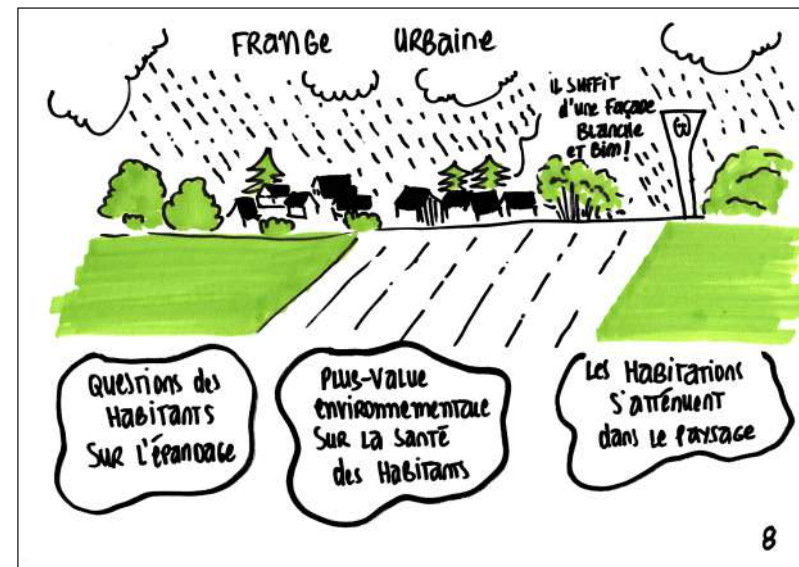 FRANGE URBAINE
IL SUFFIT
d'une FAÇADE
BLANCHE
ET BIM!
QUESTIONS des
HABITANTS
SUR L'ÉPANDAGE
PLUS-VALUE
ENVIRONNEMENTALE
SUR LA SANTÉ
des HABITANTS
LES HABITATIONS
S'ATTÉNUENT
dans LE PAYSAGE
8